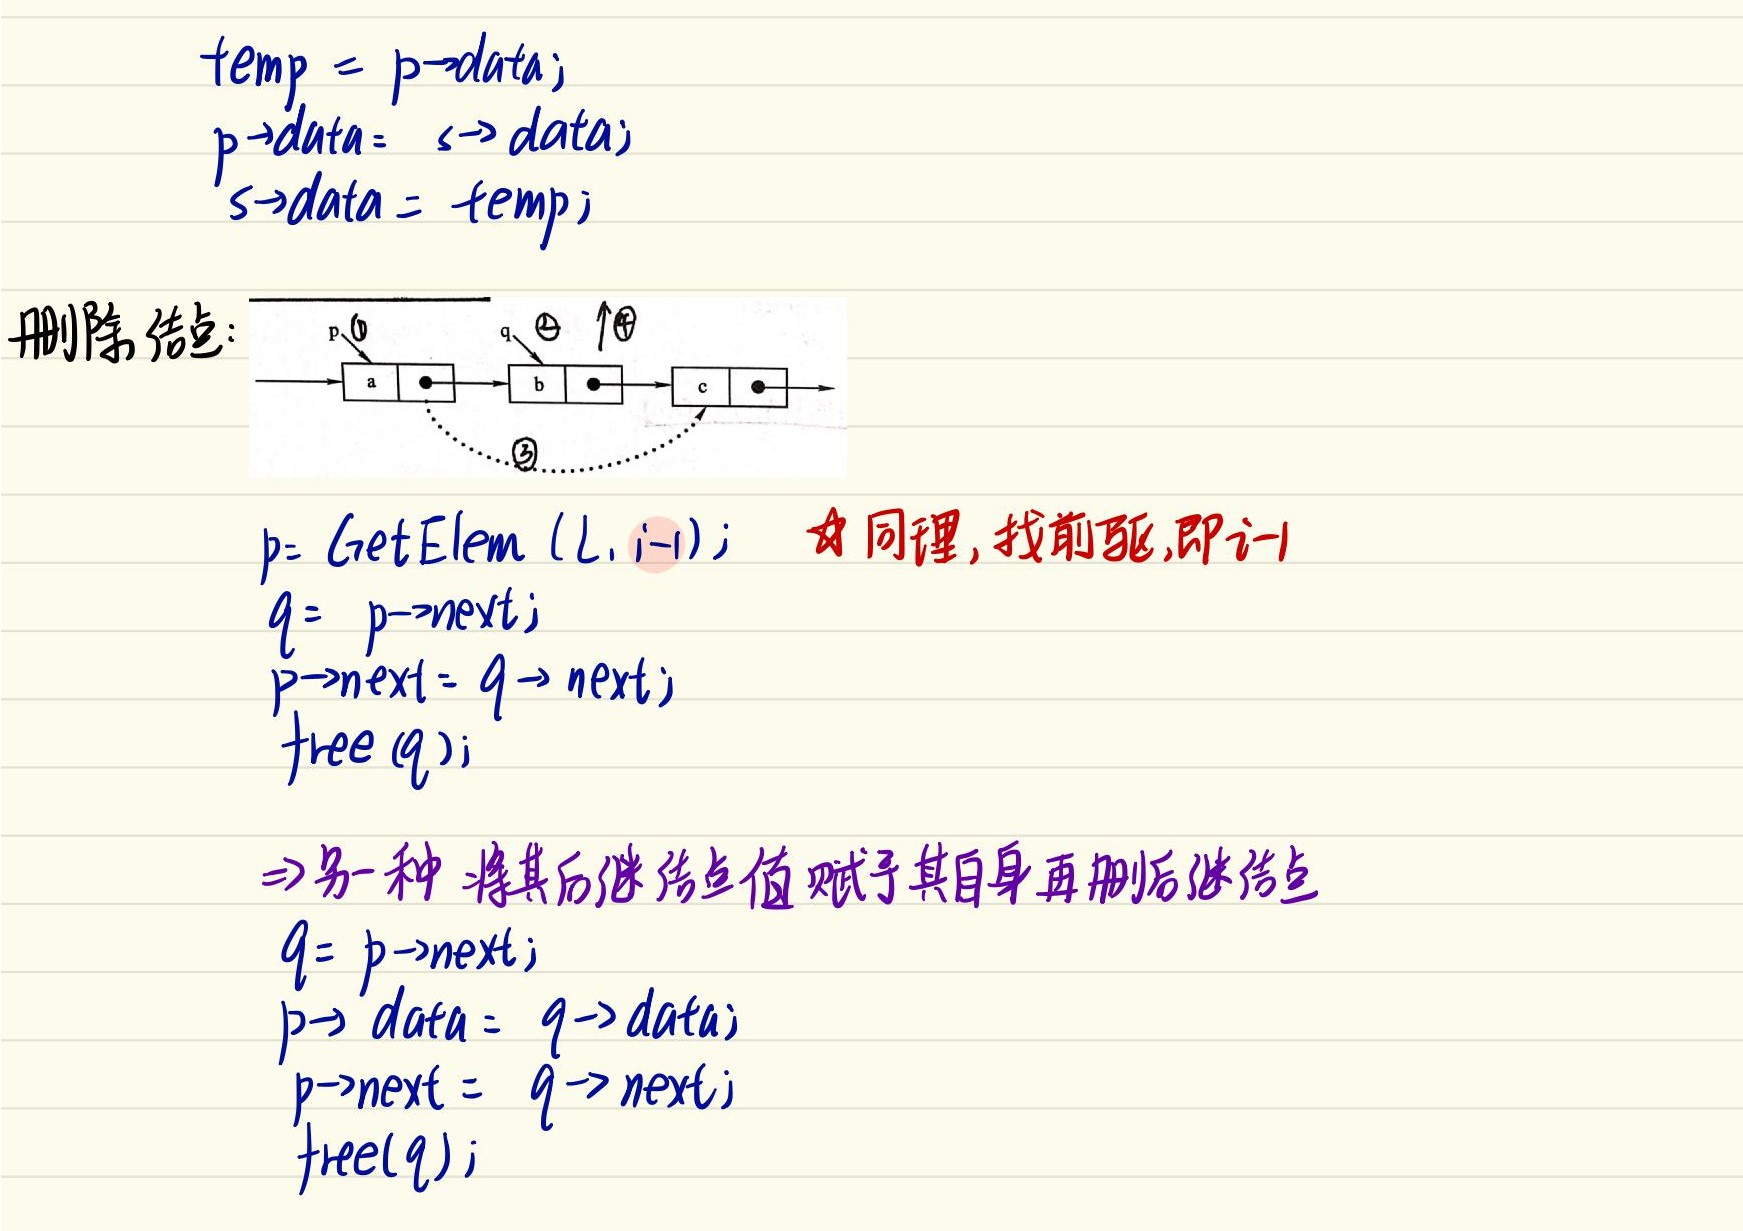 temp = p→data;
p→data = s→data;
s→data = temp;
删除结点:
p ① q ② ↑④
a b c
③
p = GetElem (L, i-1); ☆ 同理, 找前驱, 即 i-1
q = p→next;
p→next = q→next;
free(q);
⇒ 另一种 将其后继结点值赋予其自身再删后继结点
q = p→next;
p→data = q→data;
p→next = q→next;
free(q);